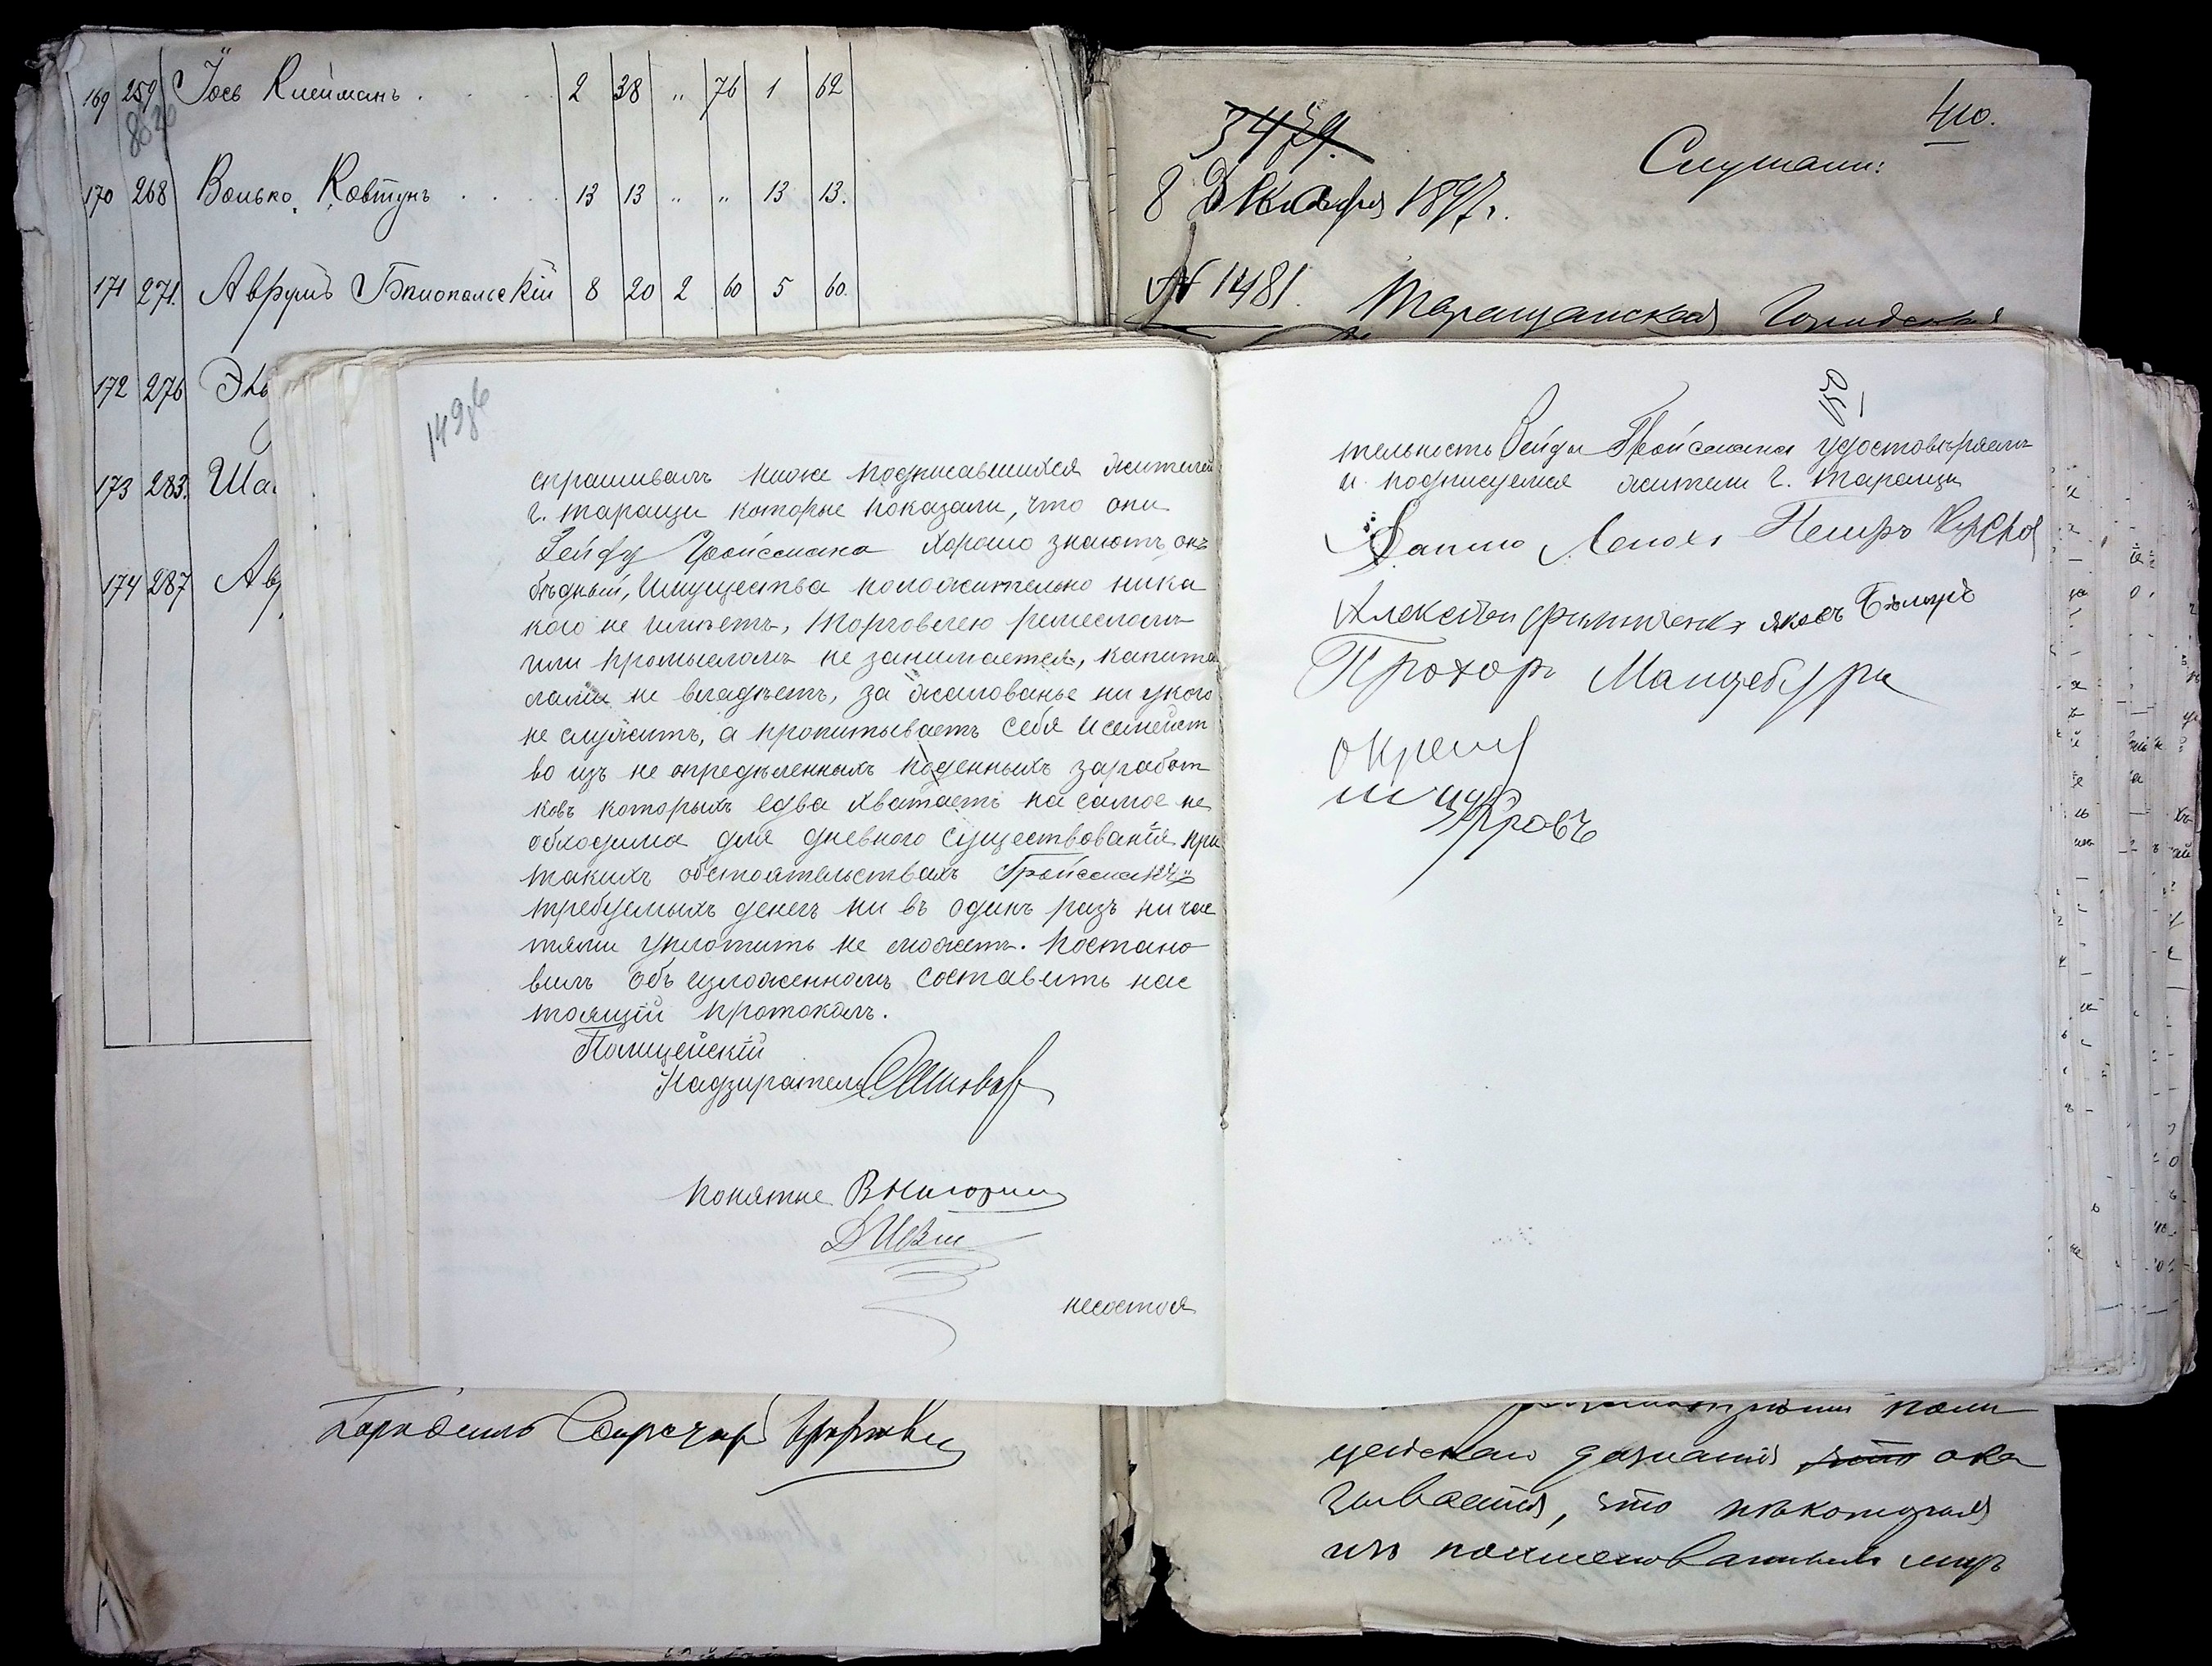 169 259 Іось Клейманъ . . . 2 38 " 76 1 62
170 268 Волько Ковтунъ . . . . 13 13 " " 13 13.
171 271. Аврумъ Бялопольскій 8 20 2 60 5 60.
172 276
173 283.
174 287
410.
3479.
Слушали:
8 Декабря 1897 г.
№ 1481. Таращанская Городская
149об
спрашивалъ ниже подписавшихся жителей
г. таращи которые показали, что они
Зейду Гройсмана хорошо знаютъ, онъ
бѣдный, Имущества положительно ника
кого не имѣетъ, торговлею ремесломъ
или промысломъ не занимается, капита
лами не владѣетъ, за жалованье ни укого
не служитъ, а пропитываетъ себя и семейст
во изъ не опредѣленныхъ поденныхъ заработ
ковъ которыхъ едва хватаетъ на самое не
обходима для дневного существованія при
такихъ обстоятельствахъ Гройсманъ
требуемыхъ денегъ ни въ одинъ разъ ни час
тями уплотить не можетъ. постано
вилъ объ изложенномъ составить нас
тоящій протоколъ.
Полицейскій
Надзиратель
понятые
несостоя
150
тельность Зейды Гройсмана удостовѣряемъ
и подписуемся жители г. таращи
Петръ
Алексѣй
Прохоръ Манцебура
цейскаго дознанія что ока
зывается, что нѣкоторыя
изъ поименованныхъ лицъ